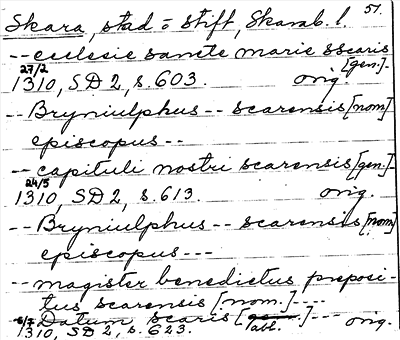 51.
Skara, stad o stift, Skarab. l.
-- ecclesie sancte marie scaris
[gen.]-
27/2
1310, SD 2, s. 603. orig.
-- Bryniulphus -- scarensis [nom]
episcopus --
-- capituli nostri scarensis [gen.]-
24/5
1310, SD 2, s. 613. orig.
-- Bryniulphus -- scarensis [nom]
episcopus ---
-- magister benedictus preposi-
tus scarensis [nom.] ----
-- Datum scaris [ abl. ] --- orig.
6/7
1310, SD 2, s. 623.